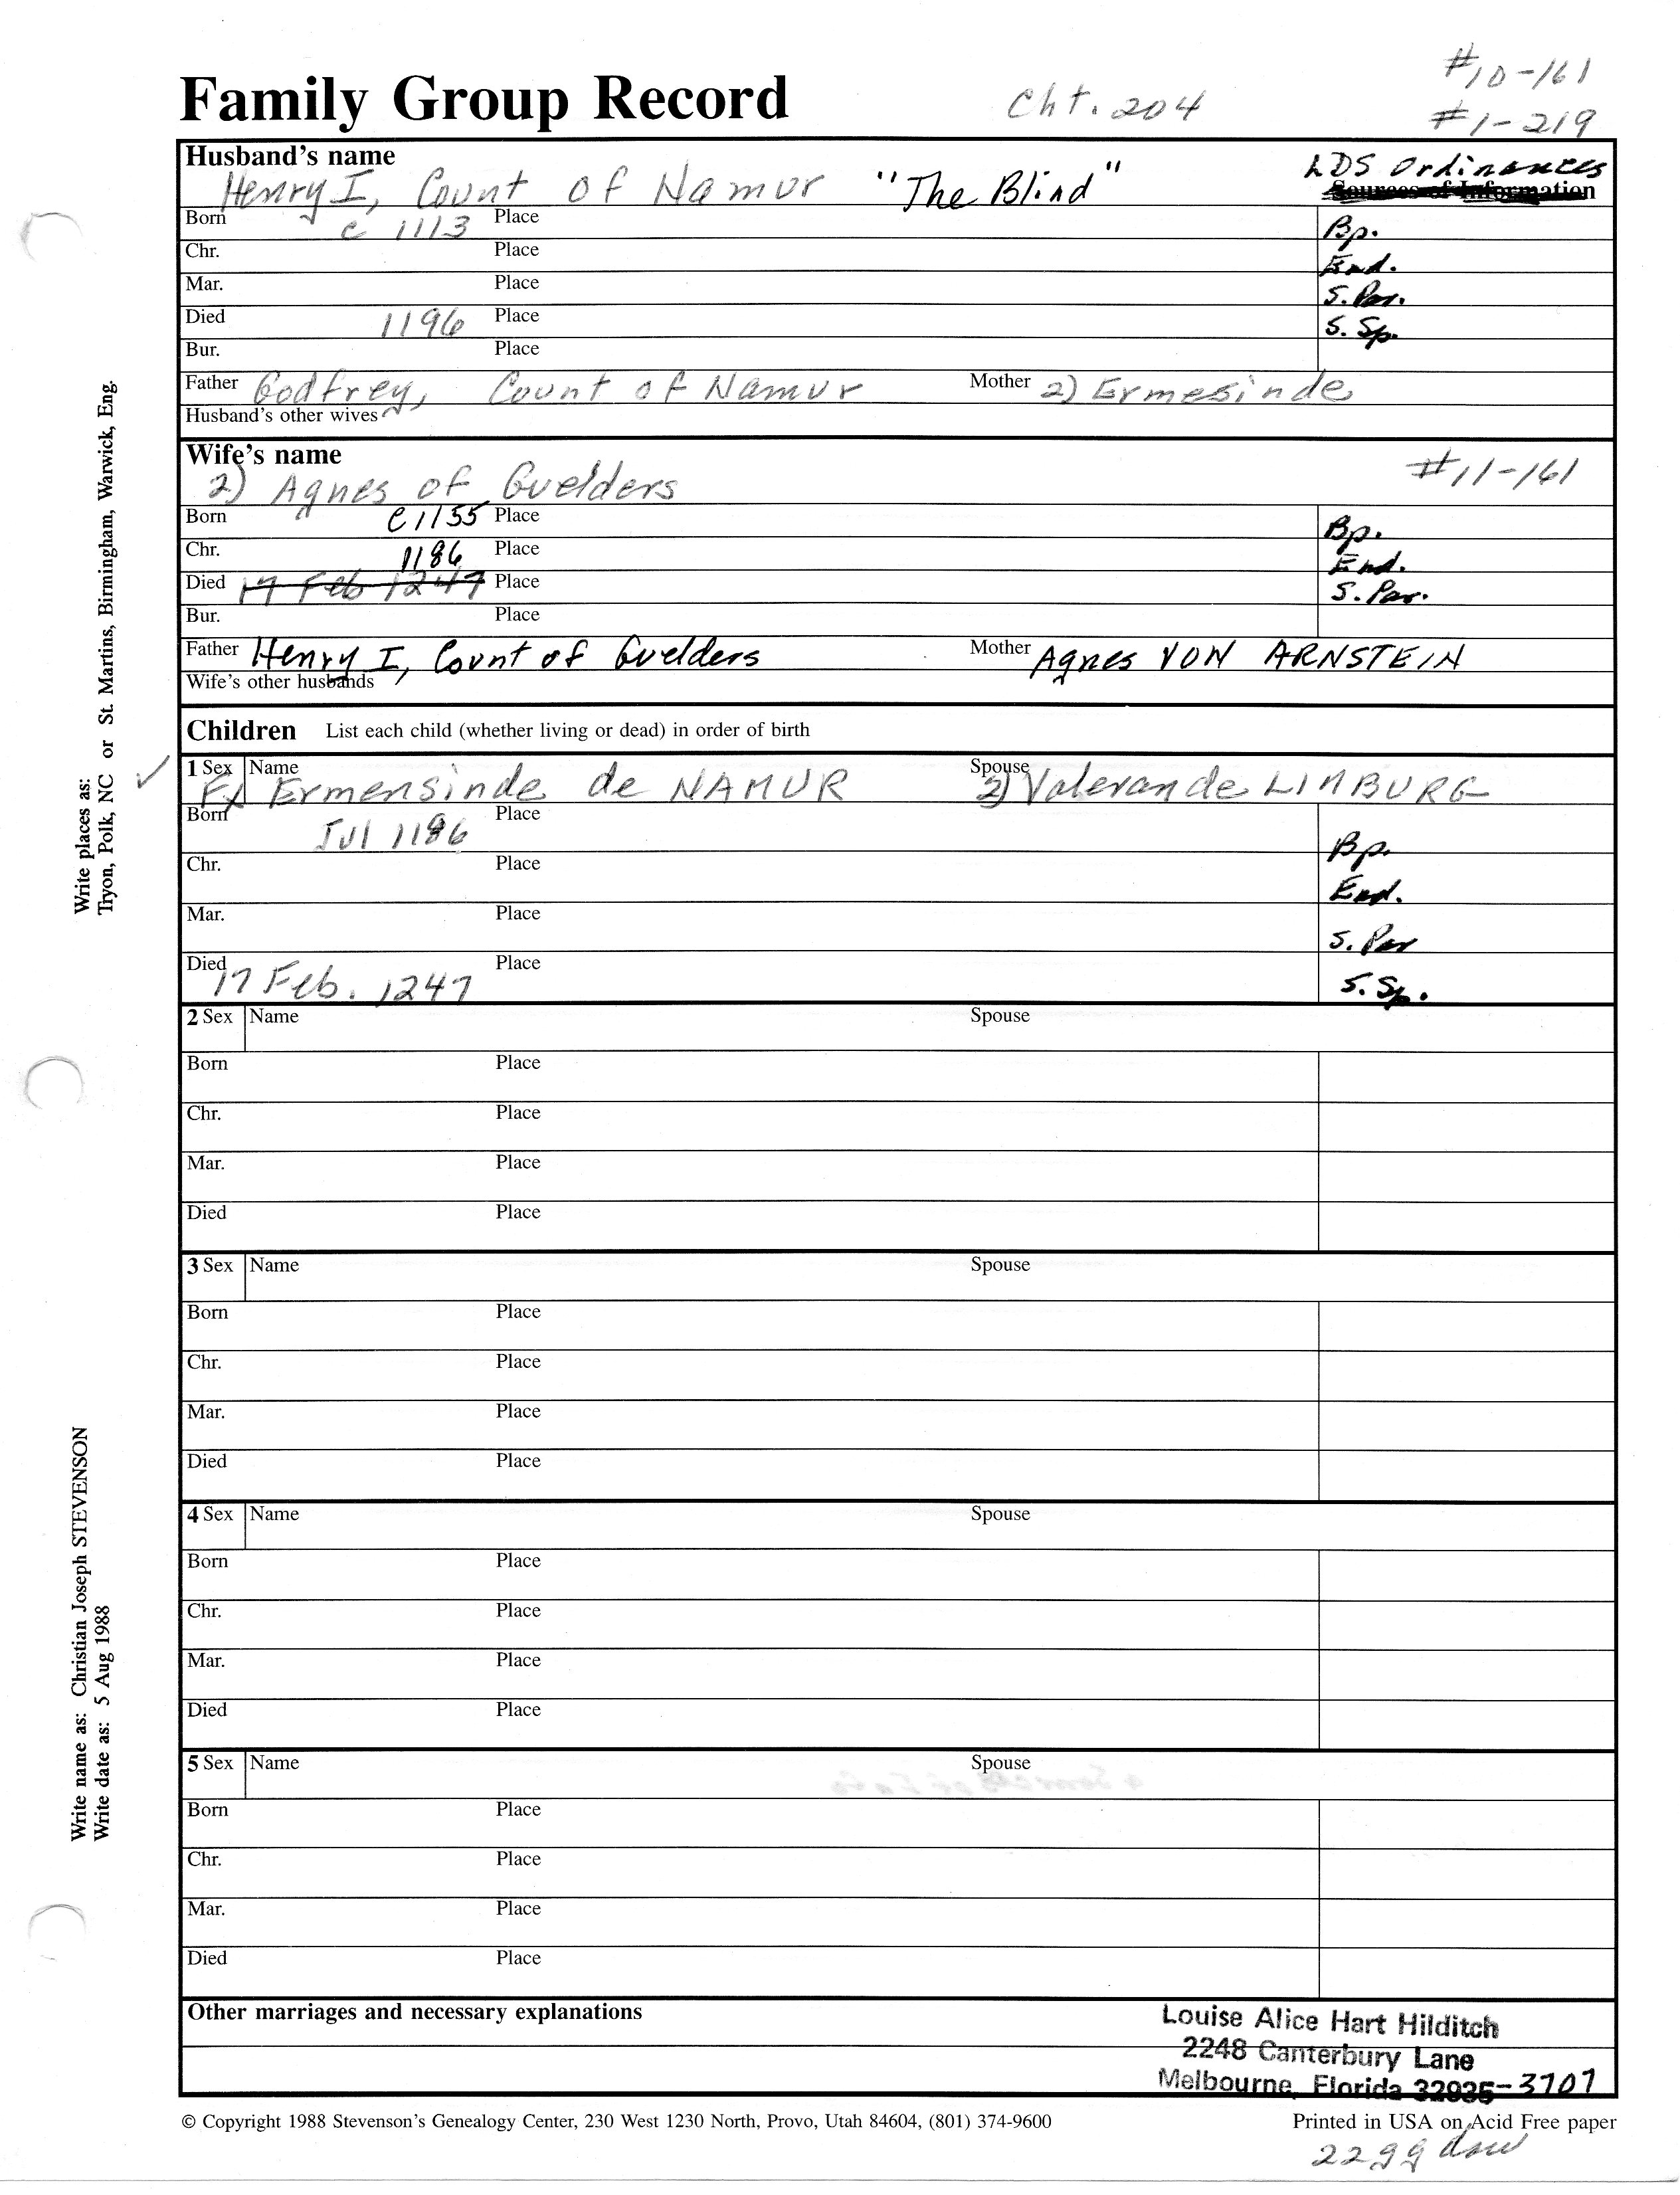 #10-161
Family Group Record Cht. 204 #1-219
Husband's name LDS Ordinances
Henry I, Count of Namur "The Blind" Sources of Information
Born c 1113 Place Bp.
Chr. Place End.
Mar. Place S. Par.
Died 1196 Place S. Sp.
Bur. Place
Father Godfrey, Count of Namur Mother 2) Ermesinde
Husband's other wives
Wife's name #11-161
2) Agnes of Guelders
Born c1155 Place Bp.
Chr. Place End.
1186
Died 17 Feb 1247 Place S. Par.
Bur. Place
Father Henry I, Count of Guelders Mother Agnes VON ARNSTEIN
Wife's other husbands
Children List each child (whether living or dead) in order of birth
1 Sex Name Spouse
Ermensinde de NAMUR 2) Valeran de LIMBURG
Born Jul 1186 Place Bp.
Chr. Place End.
Mar. Place S. Par
Died 17 Feb. 1247 Place S. Sp.
2 Sex Name Spouse
Born Place
Chr. Place
Mar. Place
Died Place
3 Sex Name Spouse
Born Place
Chr. Place
Mar. Place
Died Place
4 Sex Name Spouse
Born Place
Chr. Place
Mar. Place
Died Place
5 Sex Name Spouse
Born Place
Chr. Place
Mar. Place
Died Place
Other marriages and necessary explanations
Louise Alice Hart Hilditch
2248 Canterbury Lane
Melbourne, Florida 32935-3707
© Copyright 1988 Stevenson's Genealogy Center, 230 West 1230 North, Provo, Utah 84604, (801) 374-9600 Printed in USA on Acid Free paper
22gg dau
Write places as:
Tryon, Polk, NC or St. Martins, Birmingham, Warwick, Eng.
Write name as: Christian Joseph STEVENSON
Write date as: 5 Aug 1988